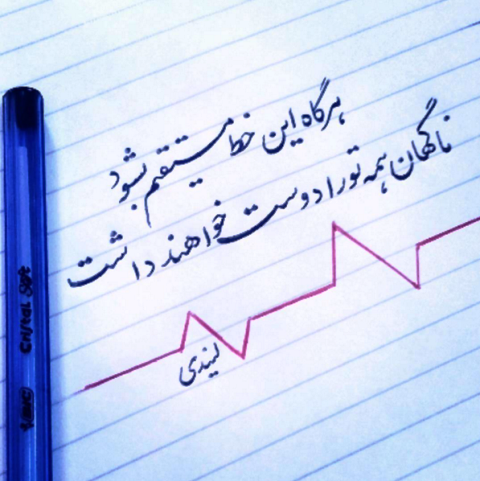 هرگاه این خط مستقیم بشود
ناگهان همه تو را دوست خواهند داشت
لیندی
Cristal Soft